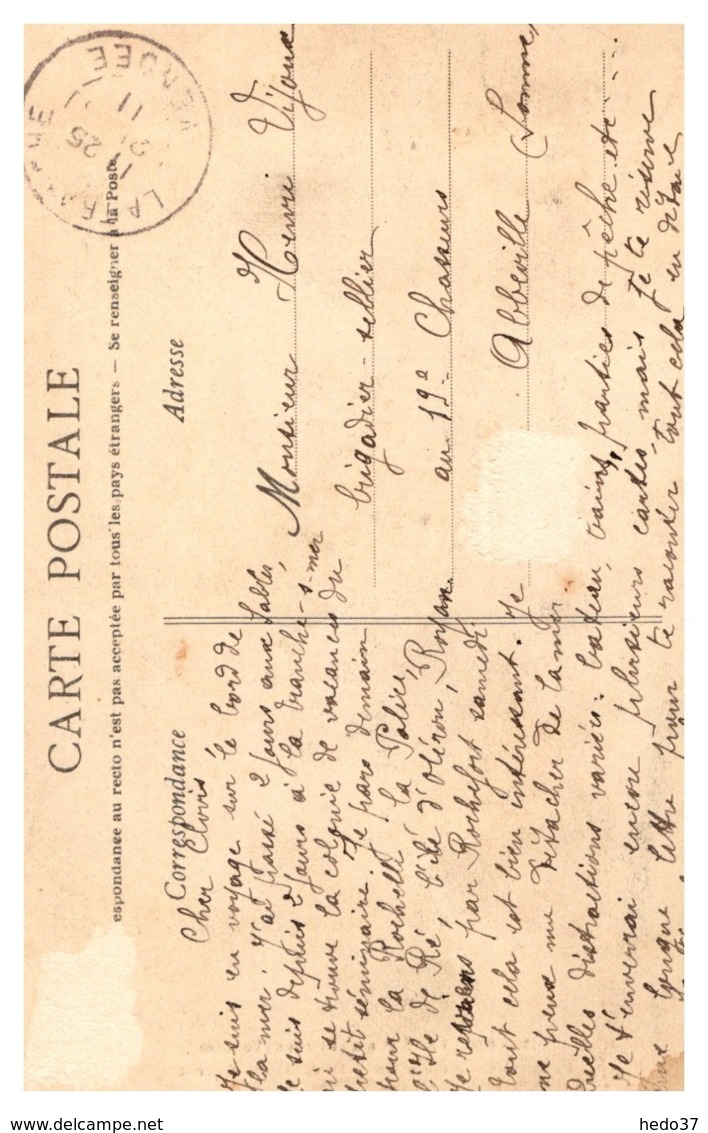 CARTE POSTALE
espondance au recto n'est pas acceptée par tous les pays étrangers — Se renseigner à la Poste
Correspondance
Cher Clovis
Je suis en voyage sur le bord de
la mer. J'ai passé 2 jours aux Sables,
Je suis depuis 2 jours à la Tranche-s-mer
où se trouve la colonie de vacances du
petit séminaire. Je pars demain
pour la Rochelle, la Palice,
l'Ile de Ré, l'île d'Oléron, Royan.
Je reviens par Rochefort samedi
tout cela est bien intéressant. Je
ne peux me détacher de la mer.
Quelles distractions variées: bateau, bains, parties de pêche etc....
Je t'enverrai encore plusieurs cartes mais je te réserve
une longue lettre pour te raconter tout cela en
Adresse
Monsieur Henri
brigadier-sellier
au 19e Chasseurs
Abbeville (Somme)
LA
VENDÉE
25
11
hedo37
delcampe.net